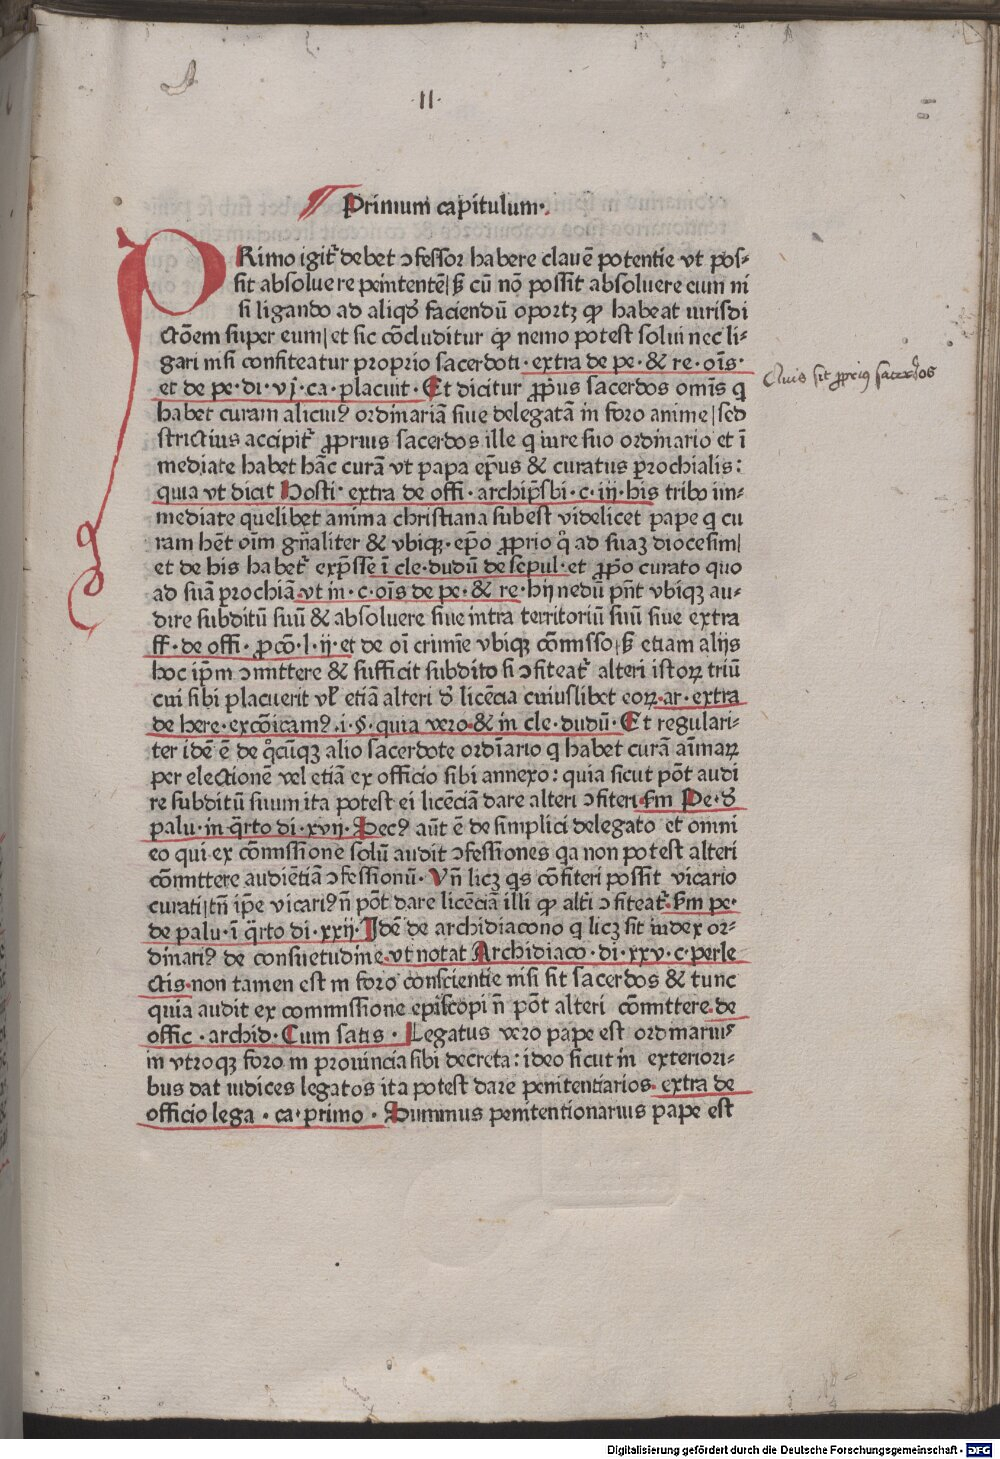 ·II·
Primum capitulum·
PRimo igit᷑ debet ↄfessor habere clauē potentie vt pos⸗
sit absoluere penitentē/ꝫ cū nō possit absoluere eum ni
si ligando ad aliqd̕ faciendū oportꝫ ꝙ habeat iurisdi
ctōem super eum/et sic cōcluditur ꝙ nemo potest solui nec li⸗
gari nisi confiteatur proprio sacerdoti· extra de pe· & re· oīs·
et de pe· di· vj· ca· placuit· Et dicitur ꝓp̄us sacerdos omīs q
habet curam alicuiꝰ ordinariā siue delegatā in foro anime/sed
strictius accipit᷑ ꝓprius sacerdos ille q iure suo ordinario et ī
mediate habet hāc curā vt papa ep̄us & curatus ꝑrochialis:
quia vt dicit Hosti· extra de offi· archip̄sbi· c· iij· his tribꝰ im⸗
mediate quelibet anima christiana subest videlicet pape q cu
ram hēt oīm gn̄aliter & vbiqꝫ· ep̄o ꝓprio qͦ ad suaꝫ diocesim/
et de his habet᷑ exp̄sse ī cle· dudū de sepul· et ꝓp̄o curato quo
ad suā ꝑrochiā vt in· c· oīs de pe· & re· hij nedū pn̄t vbiqꝫ au⸗
dire subditū suū & absoluere siue intra territoriū suū siue extra
ff· de offi· ꝓcō· l· ij· et de oī crimīe vbiqꝫ cōmisso/ꝫ etiam alijs
hoc ip̄m ↄmittere & sufficit subdito si ↄfiteat᷑ alteri istoꝝ triū
cui sibi placuerit vl̕ etiā alteri d̕ licēcia cuiuslibet eoꝝ· ar· extra
de here· excōicamꝰ· i· §· quia vero· & in cle· dudū· Et regulari⸗
ter idē ē de qͦcūqꝫ alio sacerdote ordīario q habet curā aīmaꝝ
per electionē vel etiā ex officio sibi annexo: quia sicut pōt audi
re subditū suum ita potest ei licēciā dare alteri ↄfiteri· ẜm Pe· d̕
palu· in q̄rto di· xvij· Secꝰ aūt ē de simplici delegato et omni
eo qui ex cōmissione solū audit ↄfessiones qa non potest alteri
cōmittere audiētiā ↄfessionū· Vn̄ licꝫ qs cōfiteri possit vicario
curati/tn̄ ip̄e vicariꝰ n̄ pōt dare licēciā illi ꝙ alt̕i ↄfiteat᷑· ẜm pe·
de palu· ī q̄rto di· xxij· Idē de archidiacono q licꝫ sit iudex or⸗
dinariꝰ de consuetudine· vt notat Archidiaco· di· xxv· c· perle
ctis· non tamen est in foro conscientie nisi sit sacerdos & tunc
quia audit ex commissione episcopi n̄ pōt alteri cōmittere· de
offic· archid· Cum satis· Legatus vero pape est ordinarius
in vtroqꝫ foro in prouincia sibi decreta: ideo sicut in exteriori⸗
bus dat iudices legatos ita potest dare penitentiarios· extra de
officio lega· ca· primo· Summus penitentionarius pape est
Quis sit ꝓpriꝰ sacerdos
Digitalisierung gefördert durch die Deutsche Forschungsgemeinschaft - DFG